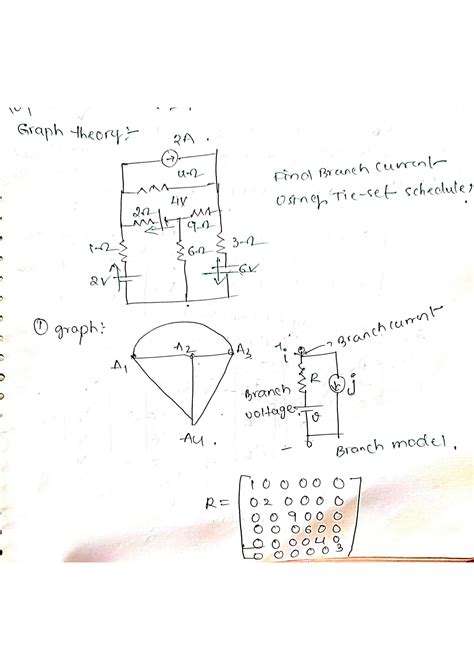 Graph theory:-
2A.
4Ω
4V
2Ω
9Ω
1Ω
6Ω
3Ω
2V
6V
Find Branch current
Using Tie-set schedule,
① graph:-
A1
A2
A3
A4
i
→ Branch current
R
j
Branch
voltage
v
Branch model.
R =
1 0 0 0 0 0
0 2 0 0 0 0
0 0 9 0 0 0
0 0 0 6 0 0
0 0 0 0 4 0
0 0 0 0 0 3